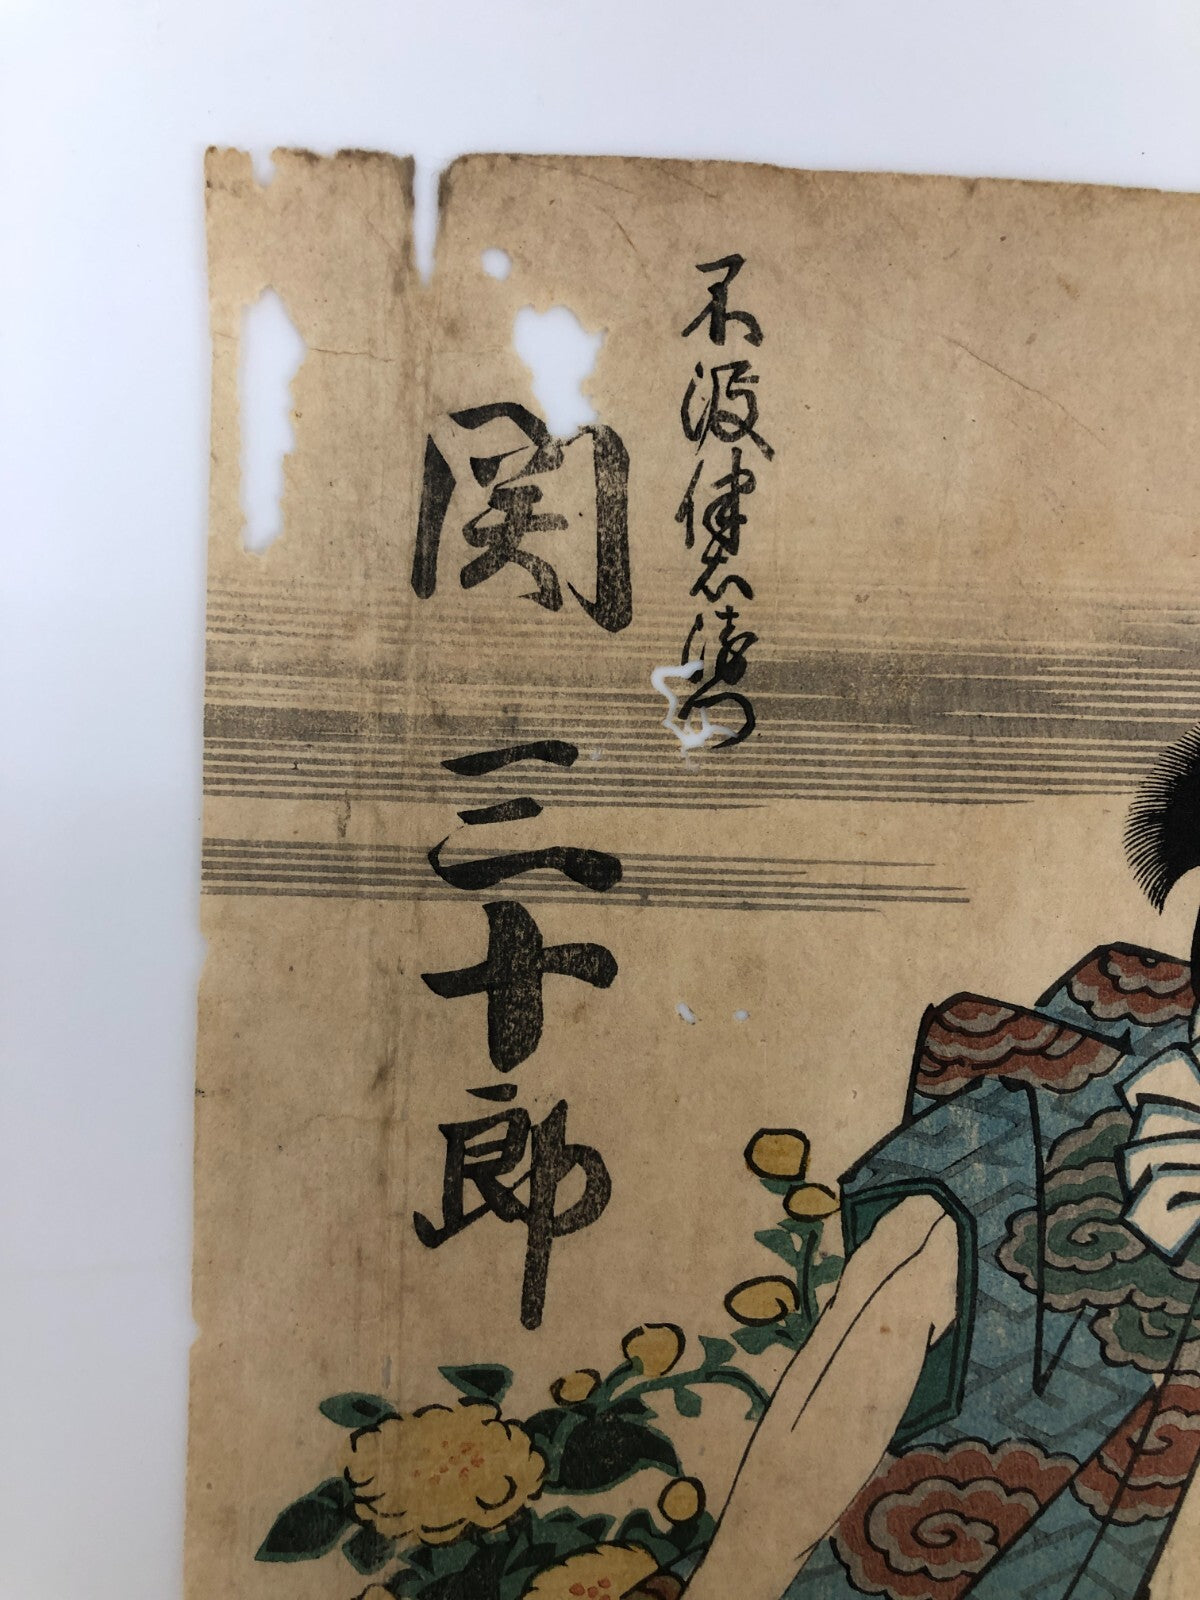 不波伴左衛門
関三十郎